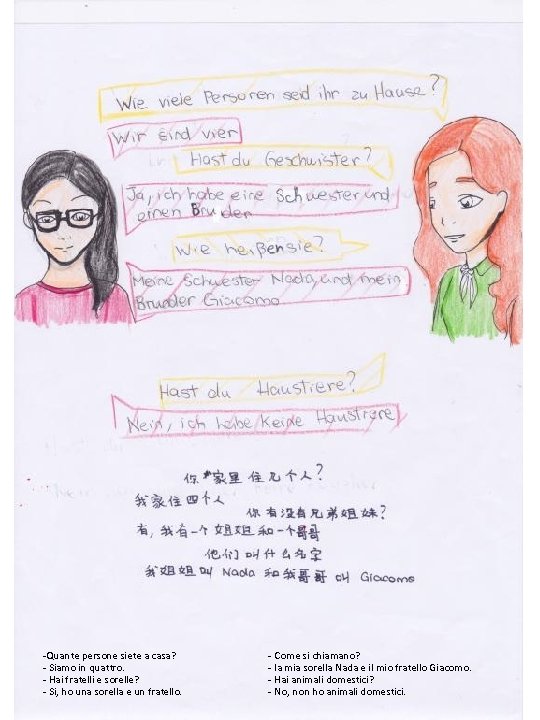 Wie viele Personen seid ihr zu Hause?
Wir sind vier
Hast du Geschwister?
Ja, ich habe eine Schwester und
einen Bruder
Wie heißen sie?
Meine Schwester Nada, und mein
Brunder Giacomo
Hast du Haustiere?
Nein, ich habe keine Haustiere
你家里住几个人?
我家住四个人
你有没有兄弟姐妹?
有, 我有一个姐姐和一个哥哥
他们叫什么名字
我姐姐叫 Nada 和我哥哥叫 Giacomo
-Quante persone siete a casa?
- Siamo in quattro.
- Hai fratelli e sorelle?
- Si, ho una sorella e un fratello.
- Come si chiamano?
- la mia sorella Nada e il mio fratello Giacomo.
- Hai animali domestici?
- No, non ho animali domestici.